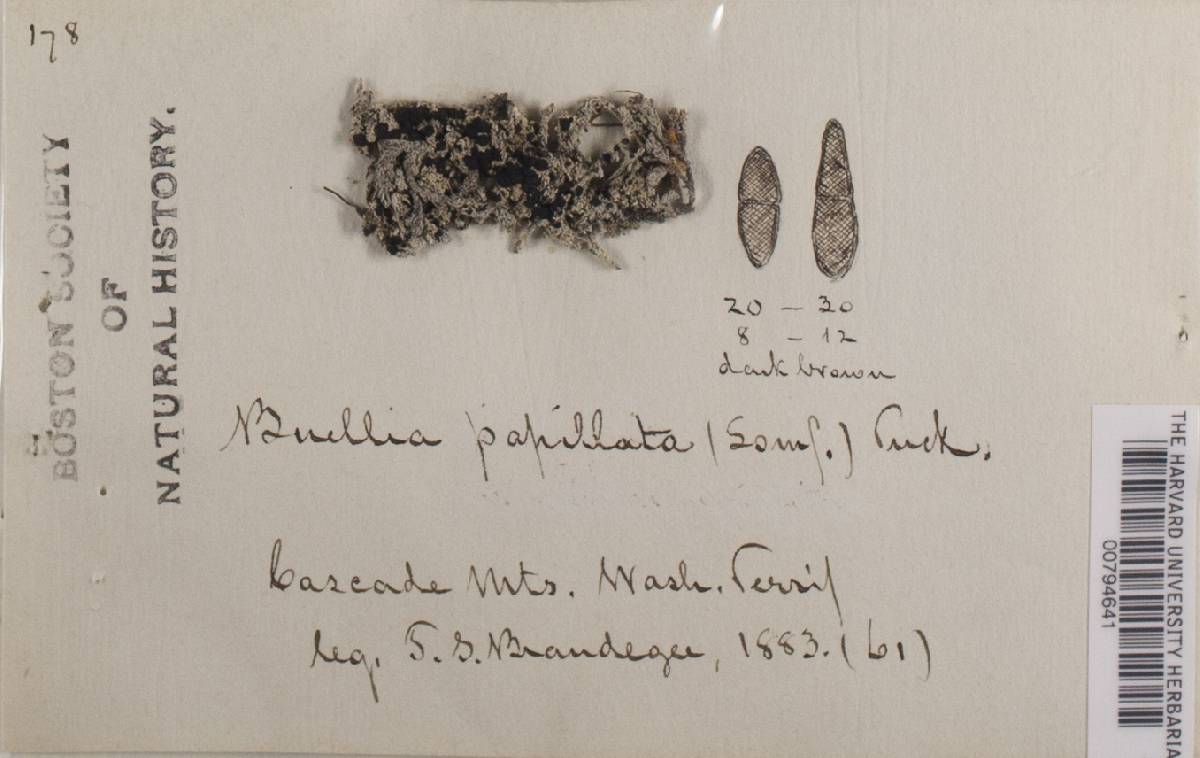 178
BOSTON SOCIETY
OF
NATURAL HISTORY.
20 – 30
8 – 12
dark brown
Buellia papillata (Somf.) Tuck.
Cascade Mts. Wash. Territ
leg. T. S. Brandegee, 1883. (61)
THE HARVARD UNIVERSITY HERBARIA
00794641